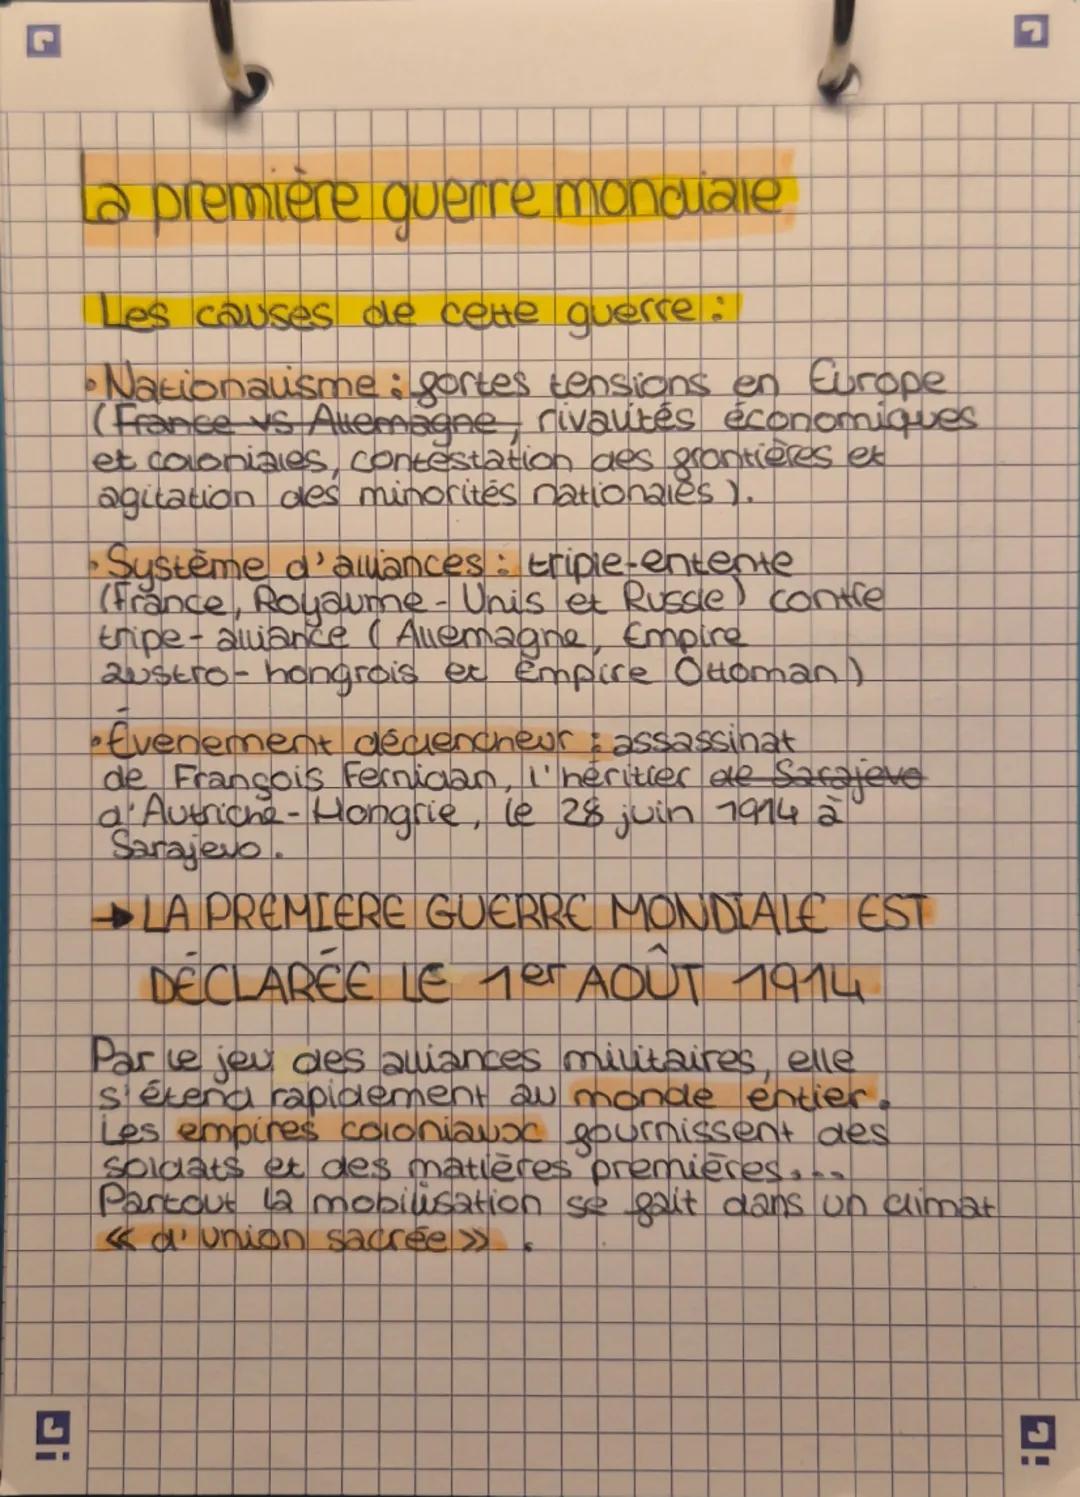 La première guerre mondiale
Les causes de cette guerre :
• Nationalisme : fortes tensions en Europe
(France vs Allemagne, rivalités économiques
et coloniales, contestation des frontières et
agitation des minorités nationales ).
• Système d'alliances : triple-entente
(France, Royaume-Unis et Russie) contre
tripe-alliance ( Allemagne, Empire
austro-hongrois et Empire Ottoman )
• Évenement déclencheur : assassinat
de François Fernidan, l'héritier de Sarajevo
d'Autriche-Hongrie, le 28 juin 1914 à
Sarajevo.
→ LA PREMIERE GUERRE MONDIALE EST
DÉCLARÉE LE 1er AOÛT 1914
Par le jeu des alliances militaires, elle
s'étend rapidement au monde entier.
Les empires coloniaux fournissent des
soldats et des matières premières....
Partout la mobilisation se fait dans un climat
« d'union sacrée » .